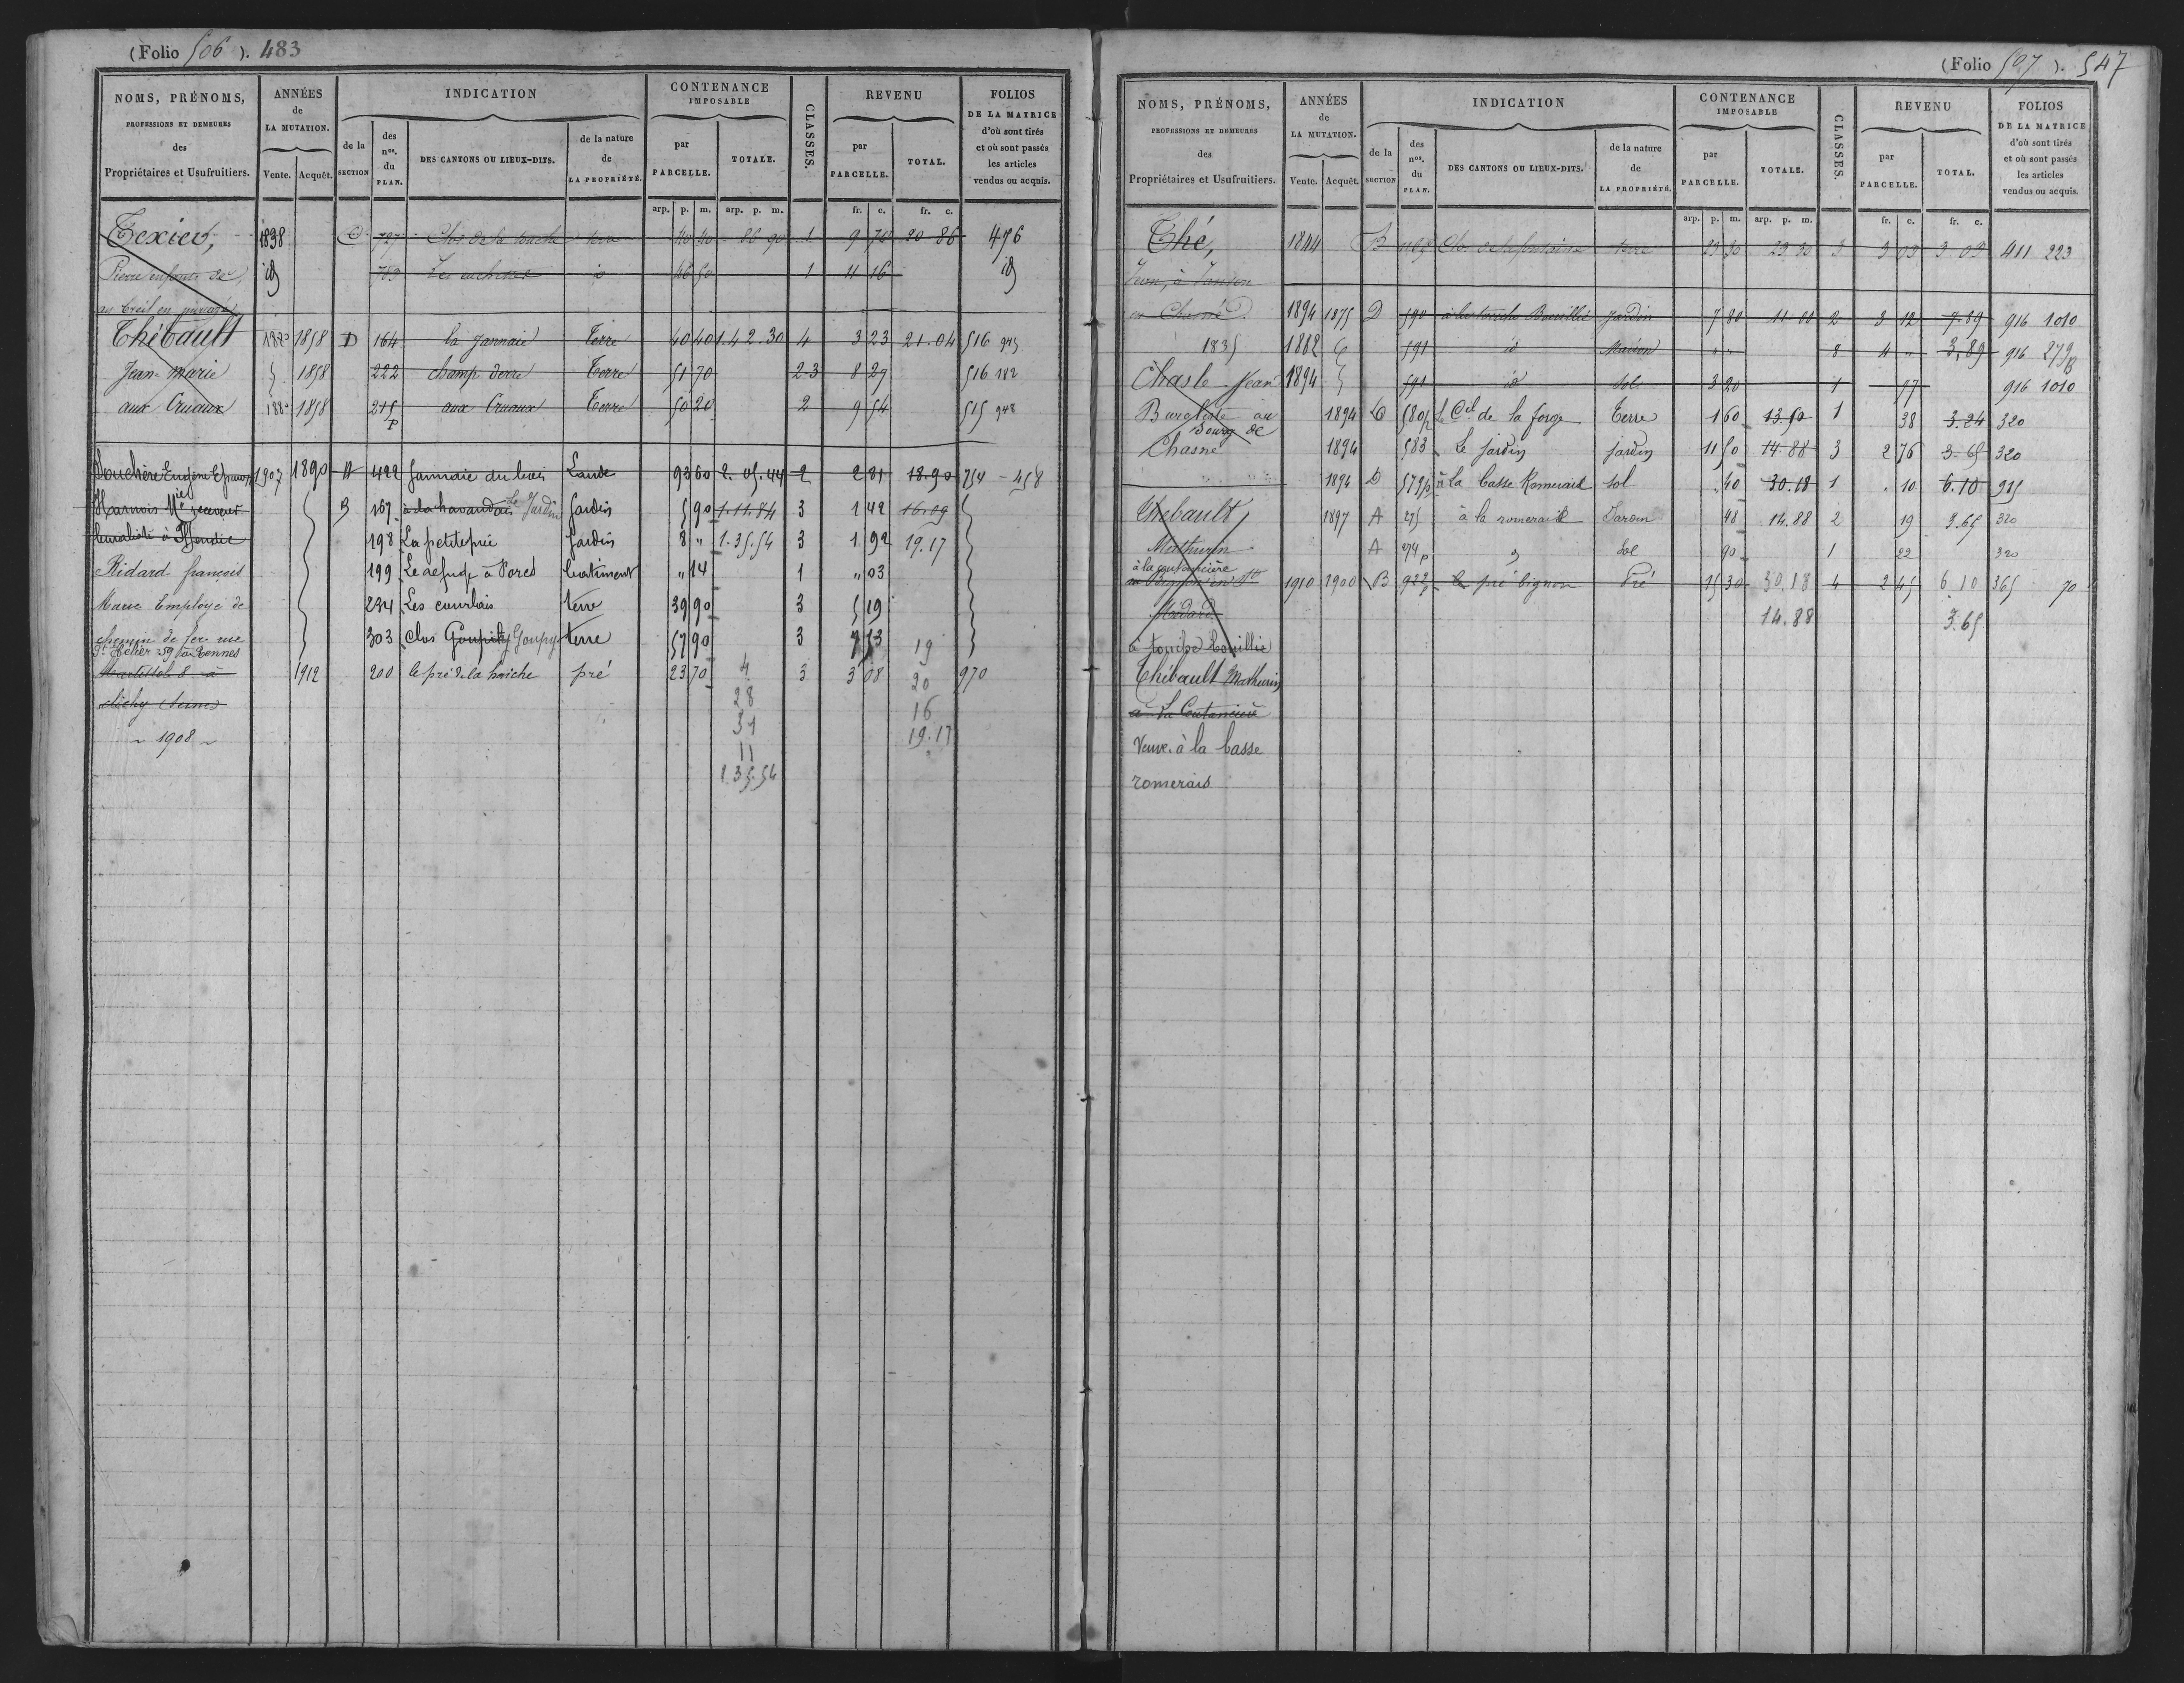 (Folio 506). 483
NOMS, PRÉNOMS, PROFESSIONS ET DEMEURES des Propriétaires et Usufruitiers.
ANNÉES de LA MUTATION. Vente. Acquêt.
INDICATION de la SECTION des nos. du PLAN. DES CANTONS OU LIEUX-DITS. de la nature de LA PROPRIÉTÉ.
CONTENANCE IMPOSABLE par PARCELLE. TOTALE.
CLASSES.
REVENU par PARCELLE. TOTAL.
FOLIOS DE LA MATRICE d'où sont tirés et où sont passés les articles vendus ou acquis.
arp. p. m. arp. p. m. fr. c. fr. c.
Texier, 1838 C 727 Clos de la touche terre 40 40 86 90 1 9 70 20 86 476
Pierre enfants de, id 783 id 46 50 1 11 16 id
au breil en
Thébault 1858 D 164 la Jannaie Terre 40 40 1.42.30 4 3 23 21.04 516 943
Jean-Marie 1858 222 champ derre Terre 51 70 2-3 8 27 516 182
aux Cruaux 1858 215 p aux Cruaux Terre 50 20 2 9 54 515 948
Eugène 1907 1890 A 422 Jannaie du bois Lande 93 60 2.05.44 2 2 81 18.90 754 - 458
Harnois B 167 à la havandais Le Jardin Jardin 5 90 1.11.84 3 1 42 16.09
198 La petite prée Jardin 8 " 1.35.54 3 1 92 19.17
Ridard françois 199 Le refuge à Porcs batiment " 14 1 " 03
Marie Employé de 234 Les courbais terre 39 90 3 5 19
chemin de fer rue 303 Clos Goupily Goupy terre 57 90 3 7 53 19
St Hélier 59 à Rennes
1912 200 le pré de la haiche pré 23 70 4 3 3 08 20 970
clichy (Seine) 28 16
~ 1908 ~ 31 19.17
11
1.35.54
(Folio 597). 547
NOMS, PRÉNOMS, PROFESSIONS ET DEMEURES des Propriétaires et Usufruitiers.
ANNÉES de LA MUTATION. Vente. Acquêt.
INDICATION de la SECTION des nos. du PLAN. DES CANTONS OU LIEUX-DITS. de la nature de LA PROPRIÉTÉ.
CONTENANCE IMPOSABLE par PARCELLE. TOTALE.
CLASSES.
REVENU par PARCELLE. TOTAL.
FOLIOS DE LA MATRICE d'où sont tirés et où sont passés les articles vendus ou acquis.
arp. p. m. arp. p. m. fr. c. fr. c.
Thé, 1844 B Ch. de la fontaine terre 23 30 23 30 3 3 03 3 03 411 223
Jean, à
en Chasné 1894 1875 D 590 à la touche Bouillie Jardin 7 80 11 00 2 3 12 7.89 916 1010
1835 1882 591 id Maison " " 8 4 " 3,89 916 279
Chasle Jean 1894 591 id Sol 3 20 1 77 916 1010
Buraliste au 1894 D 580p Cil de la forge Terre 1 60 13.50 1 38 3.24 320
bourg de
Chasné 1894 583 Le jardin jardin 11 50 14.88 3 2 76 3.65 320
1894 D 579p à la basse Romerail sol " 40 30.18 1 " 10 6.10 915
Thébault, 1897 A 275 à la romeraie Jardin 48 14.88 2 19 3.65 320
Mathurin A 274p Sol 90 1 22 320
à la coutancière
1910 1900 B 922p le pré bignon Pré 15 30 30.18 4 2 45 6.10 365 70
Médard 14.88 3.65
à touche Bouillie
Thébault Mathurin
à la Coutancière
Veuve. à la basse
romerais